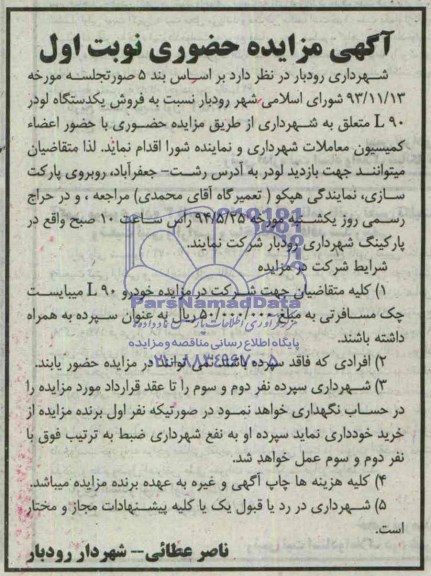 آگهی مزایده حضوری نوبت اول
شهرداری رودبار در نظر دارد بر اساس بند ۵ صورتجلسه مورخه
۹۳/۱۱/۱۳ شورای اسلامی شهر رودبار نسبت به فروش یکدستگاه لودر
L ۹۰ متعلق به شهرداری از طریق مزایده حضوری با حضور اعضاء
کمیسیون معاملات شهرداری و نماینده شورا اقدام نماید. لذا متقاضیان
میتوانند جهت بازدید لودر به آدرس رشت- جعفرآباد، روبروی پارکت
سازی، نمایندگی هپکو ( تعمیرگاه آقای محمدی) مراجعه ، و در حراج
رسمی روز یکشنبه مورخه ۹۴/۵/۲۵ راس ساعت ۱۰ صبح واقع در
پارکینگ شهرداری رودبار شرکت نمایند.
شرایط شرکت در مزایده
۱) کلیه متقاضیان جهت شرکت در مزایده خودرو L ۹۰ میبایست
ParsNamadData
چک مسافرتی به مبلغ ۵۰/۰۰۰/۰۰۰ ریال به عنوان سپرده به همراه
داشته باشند.
پایگاه اطلاع رسانی مناقصه و مزایده
۲) افرادی که فاقد سپرده باشند نمی توانند در مزایده حضور یابند.
۳) شهرداری سپرده نفر دوم و سوم را تا عقد قرارداد مورد مزایده را
در حساب نگهداری خواهد نمود در صورتیکه نفر اول برنده مزایده از
خرید خودداری نماید سپرده او به نفع شهرداری ضبط به ترتیب فوق با
نفر دوم و سوم عمل خواهد شد.
۴) کلیه هزینه ها چاپ آگهی و غیره به عهده برنده مزایده میباشد.
۵) شهرداری در رد یا قبول یک یا کلیه پیشنهادات مجاز و مختار
است.
ناصر عطائی-- شهردار رودبار